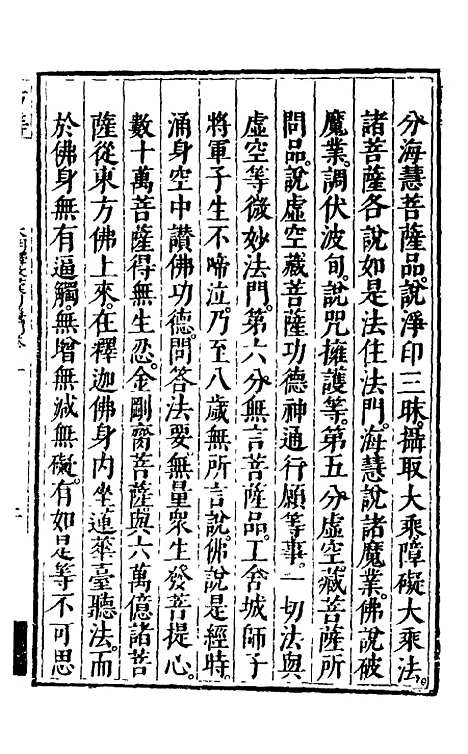 分海慧菩薩品。說淨印三昧。攝取大乘障礙大乘法。
諸菩薩各說如是法住法門。海慧說諸魔業。佛說破
魔業。調伏波旬。說咒擁護等。第五分虛空藏菩薩所
問品。說虛空藏菩薩功德神通行願等事。一切法與
虛空等微妙法門。第六分無言菩薩品。王舍城師子
將軍子生不啼泣。乃至八歲無所言說。佛說是經時。
涌身空中讚佛功德。問答法要無量衆生發菩提心。
數十萬菩薩得無生忍。金剛齊菩薩與六萬億諸菩
薩從東方佛上來。在釋迦佛身內坐蓮華臺聽法。而
於佛身無有逼觸。無增無減無礙。有如是等不可思